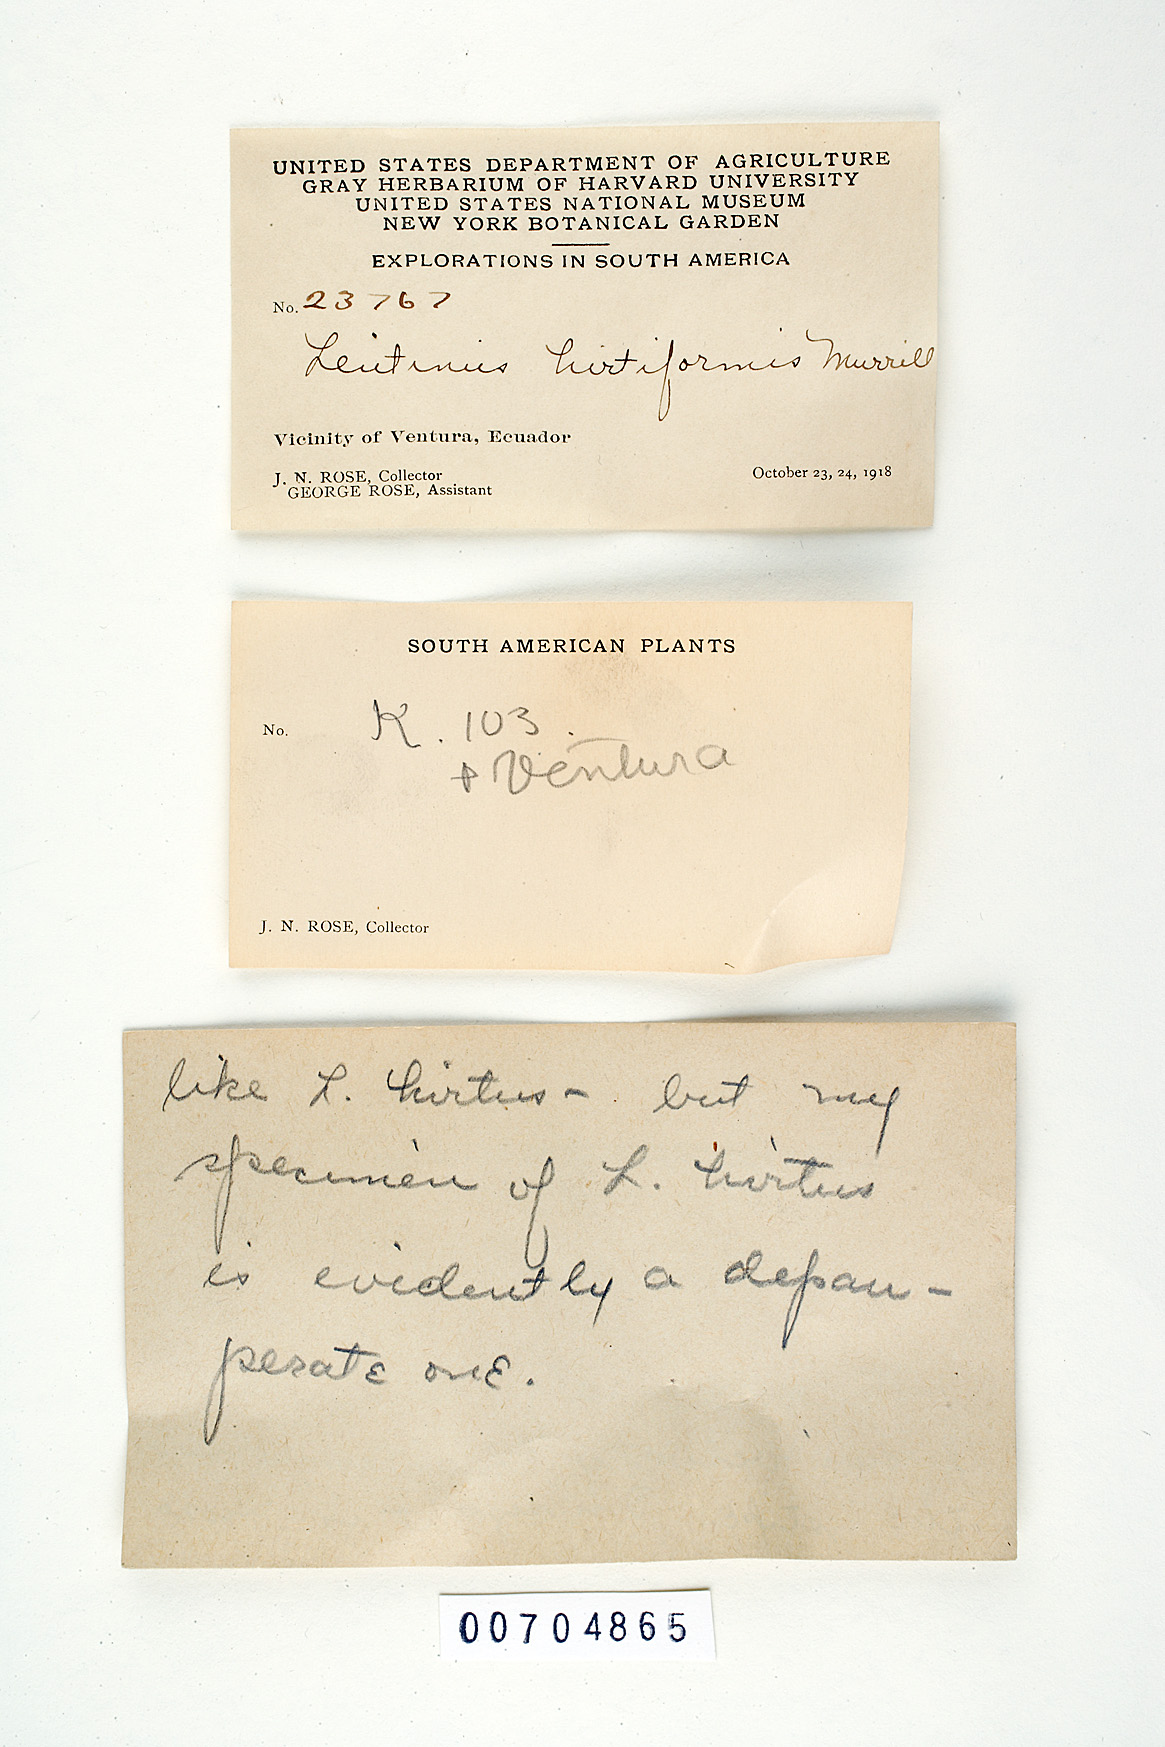 UNITED STATES DEPARTMENT OF AGRICULTURE
GRAY HERBARIUM OF HARVARD UNIVERSITY
UNITED STATES NATIONAL MUSEUM
NEW YORK BOTANICAL GARDEN
EXPLORATIONS IN SOUTH AMERICA
No. 23767
Lentinus hirtiformis Murrill
Vicinity of Ventura, Ecuador
J. N. ROSE, Collector
GEORGE ROSE, Assistant
October 23, 24, 1918
SOUTH AMERICAN PLANTS
No. K. 103.
+ Ventura
J. N. ROSE, Collector
like L. hirtus – but my
specimen of L. hirtus
is evidently a depau-
perate one.
00704865